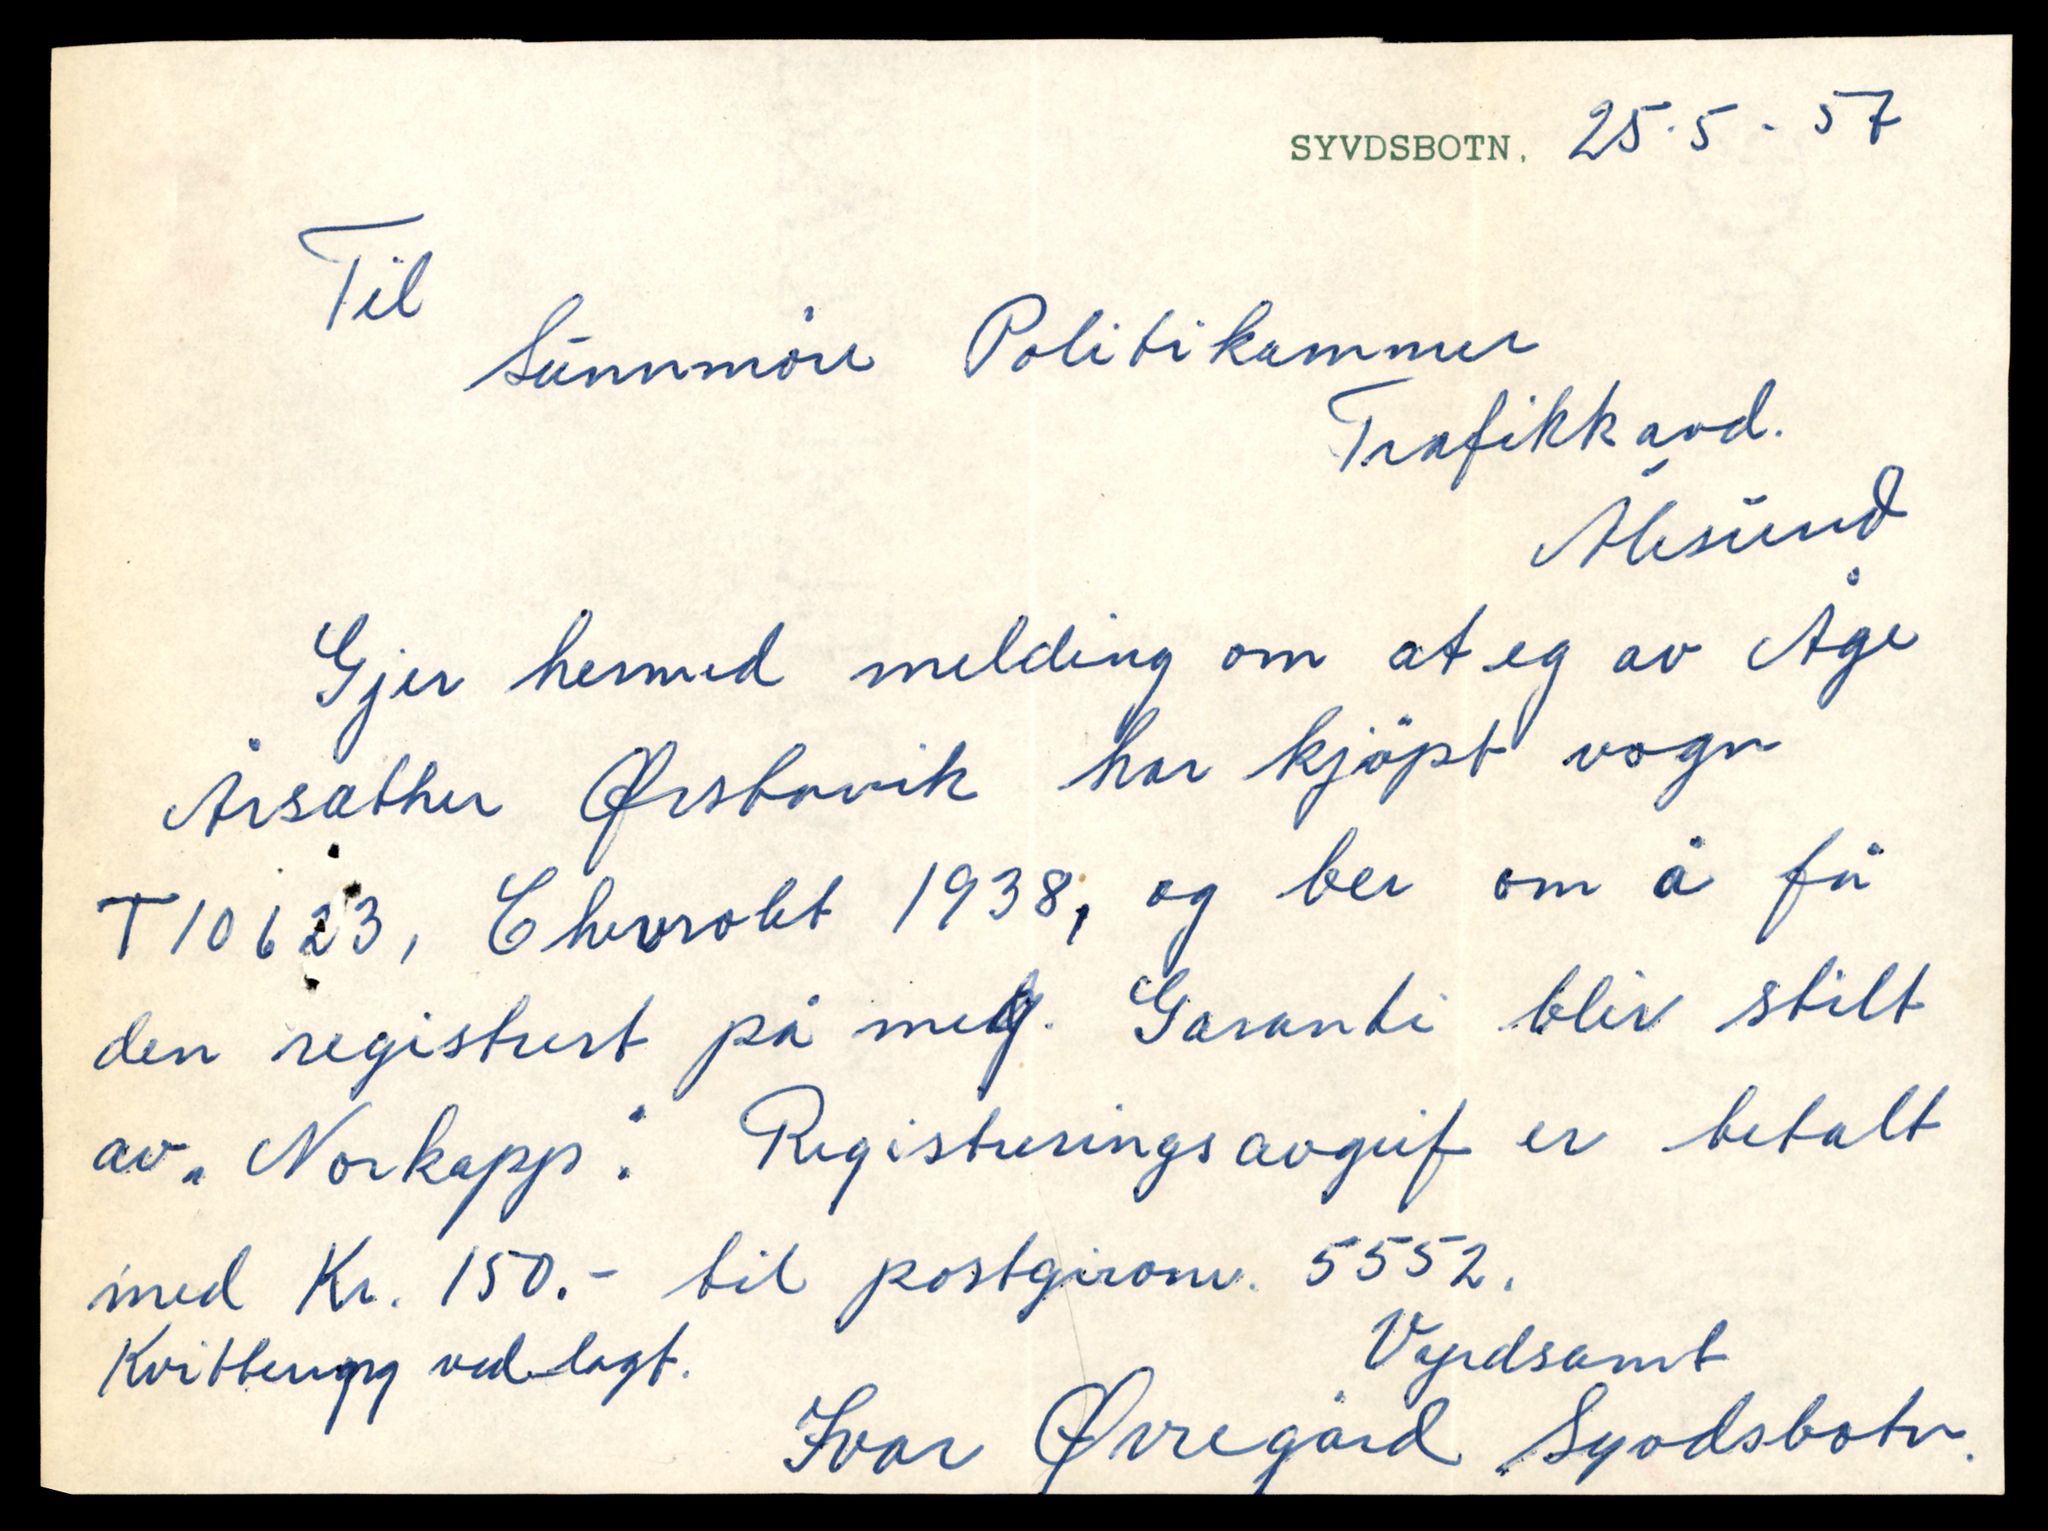 SYVDSBOTN, 25.5.-57
Til
Sunnmöre Politikammer
Trafikkavd.
Ålesund
Gjer hermed melding om at eg av Åge
Årsæther Ørstavik har kjöpt vogn
T 10623, Chevrolet 1938, og ber om å få
den registrert på meg. Garanti blir stilt
av „Norkapp". Registreringsavgift er betalt
med Kr. 150.- til postgironr. 5552.
Kvittering vedlagt.
Vyrdsamt
Ivar Øvregård Syvdsbotn.